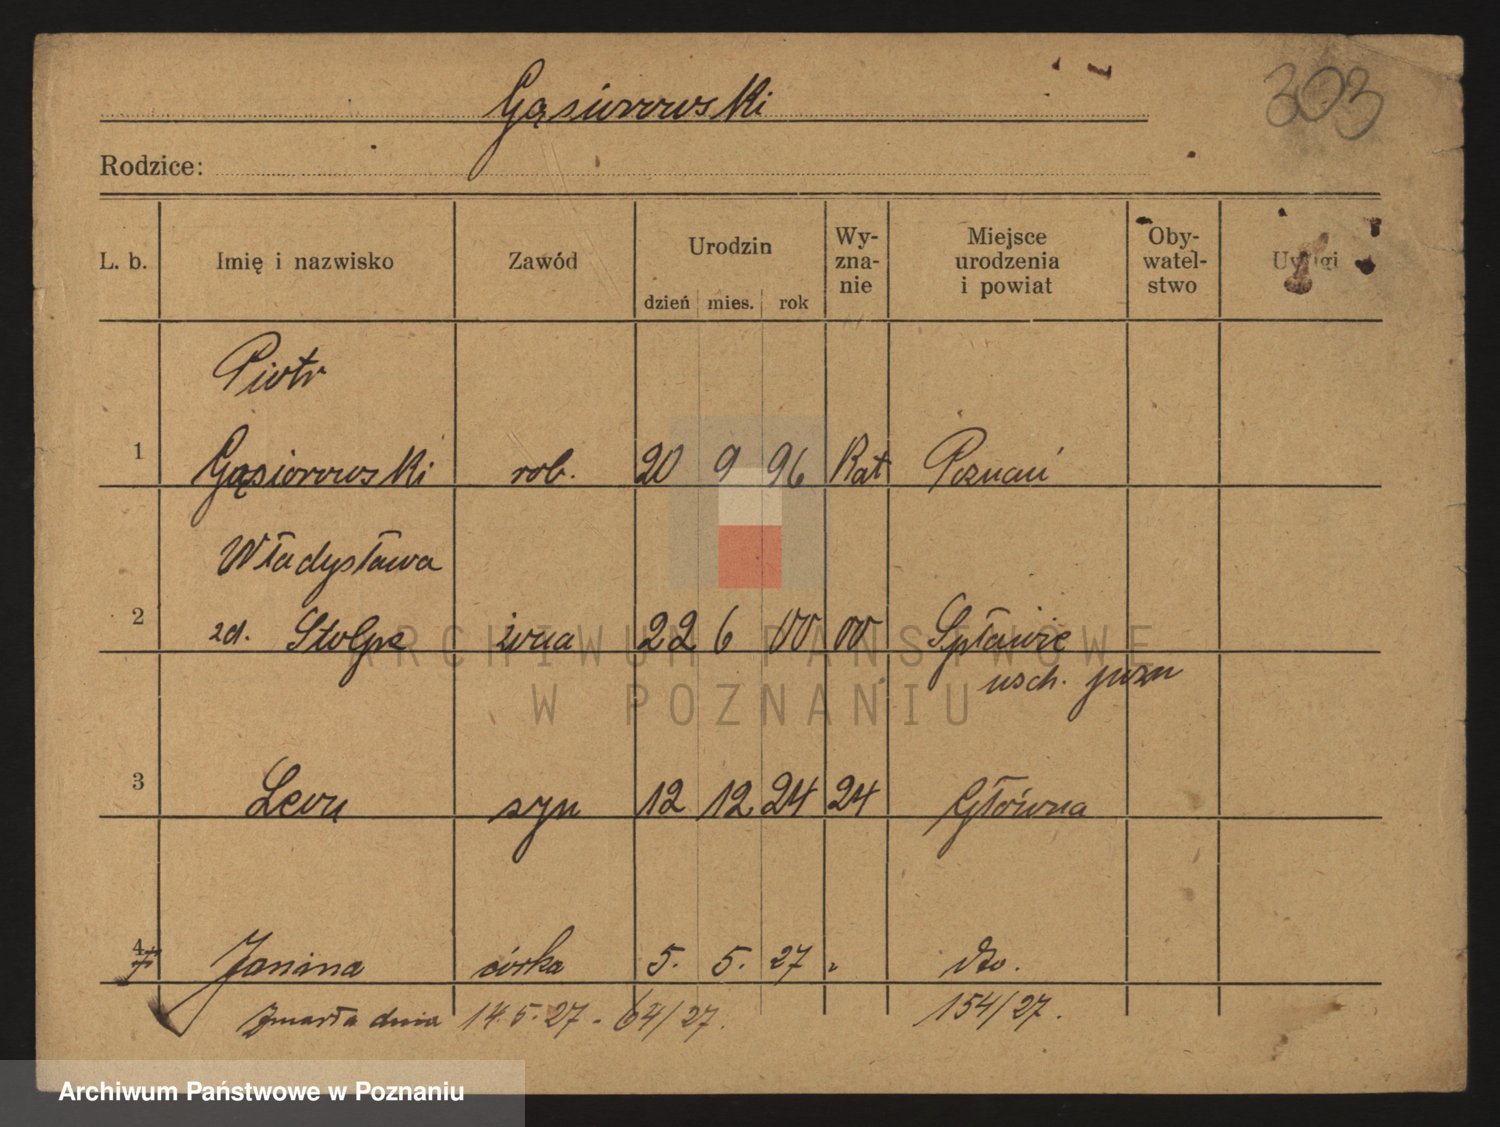 Gąsiorowski
303
Rodzice:
L. b. Imię i nazwisko Zawód Urodzin dzień mies. rok Wy-zna-nie Miejsce urodzenia i powiat Oby-watel-stwo Uwagi
Piotr
1 Gąsiorowski rob. 20 9 96 Kat Poznań
Władysława
2 zd. żona 22 6 00 00 Spławie
wsch. pozn
3 Leon syn 12 12 24 24 Główna
4 Janina córka 5. 5. 27 " dto.
Zmarła dnia 14.5.27 - 64/27. 154/27.
ARCHIWUM PAŃSTWOWE
W POZNANIU
Archiwum Państwowe w Poznaniu